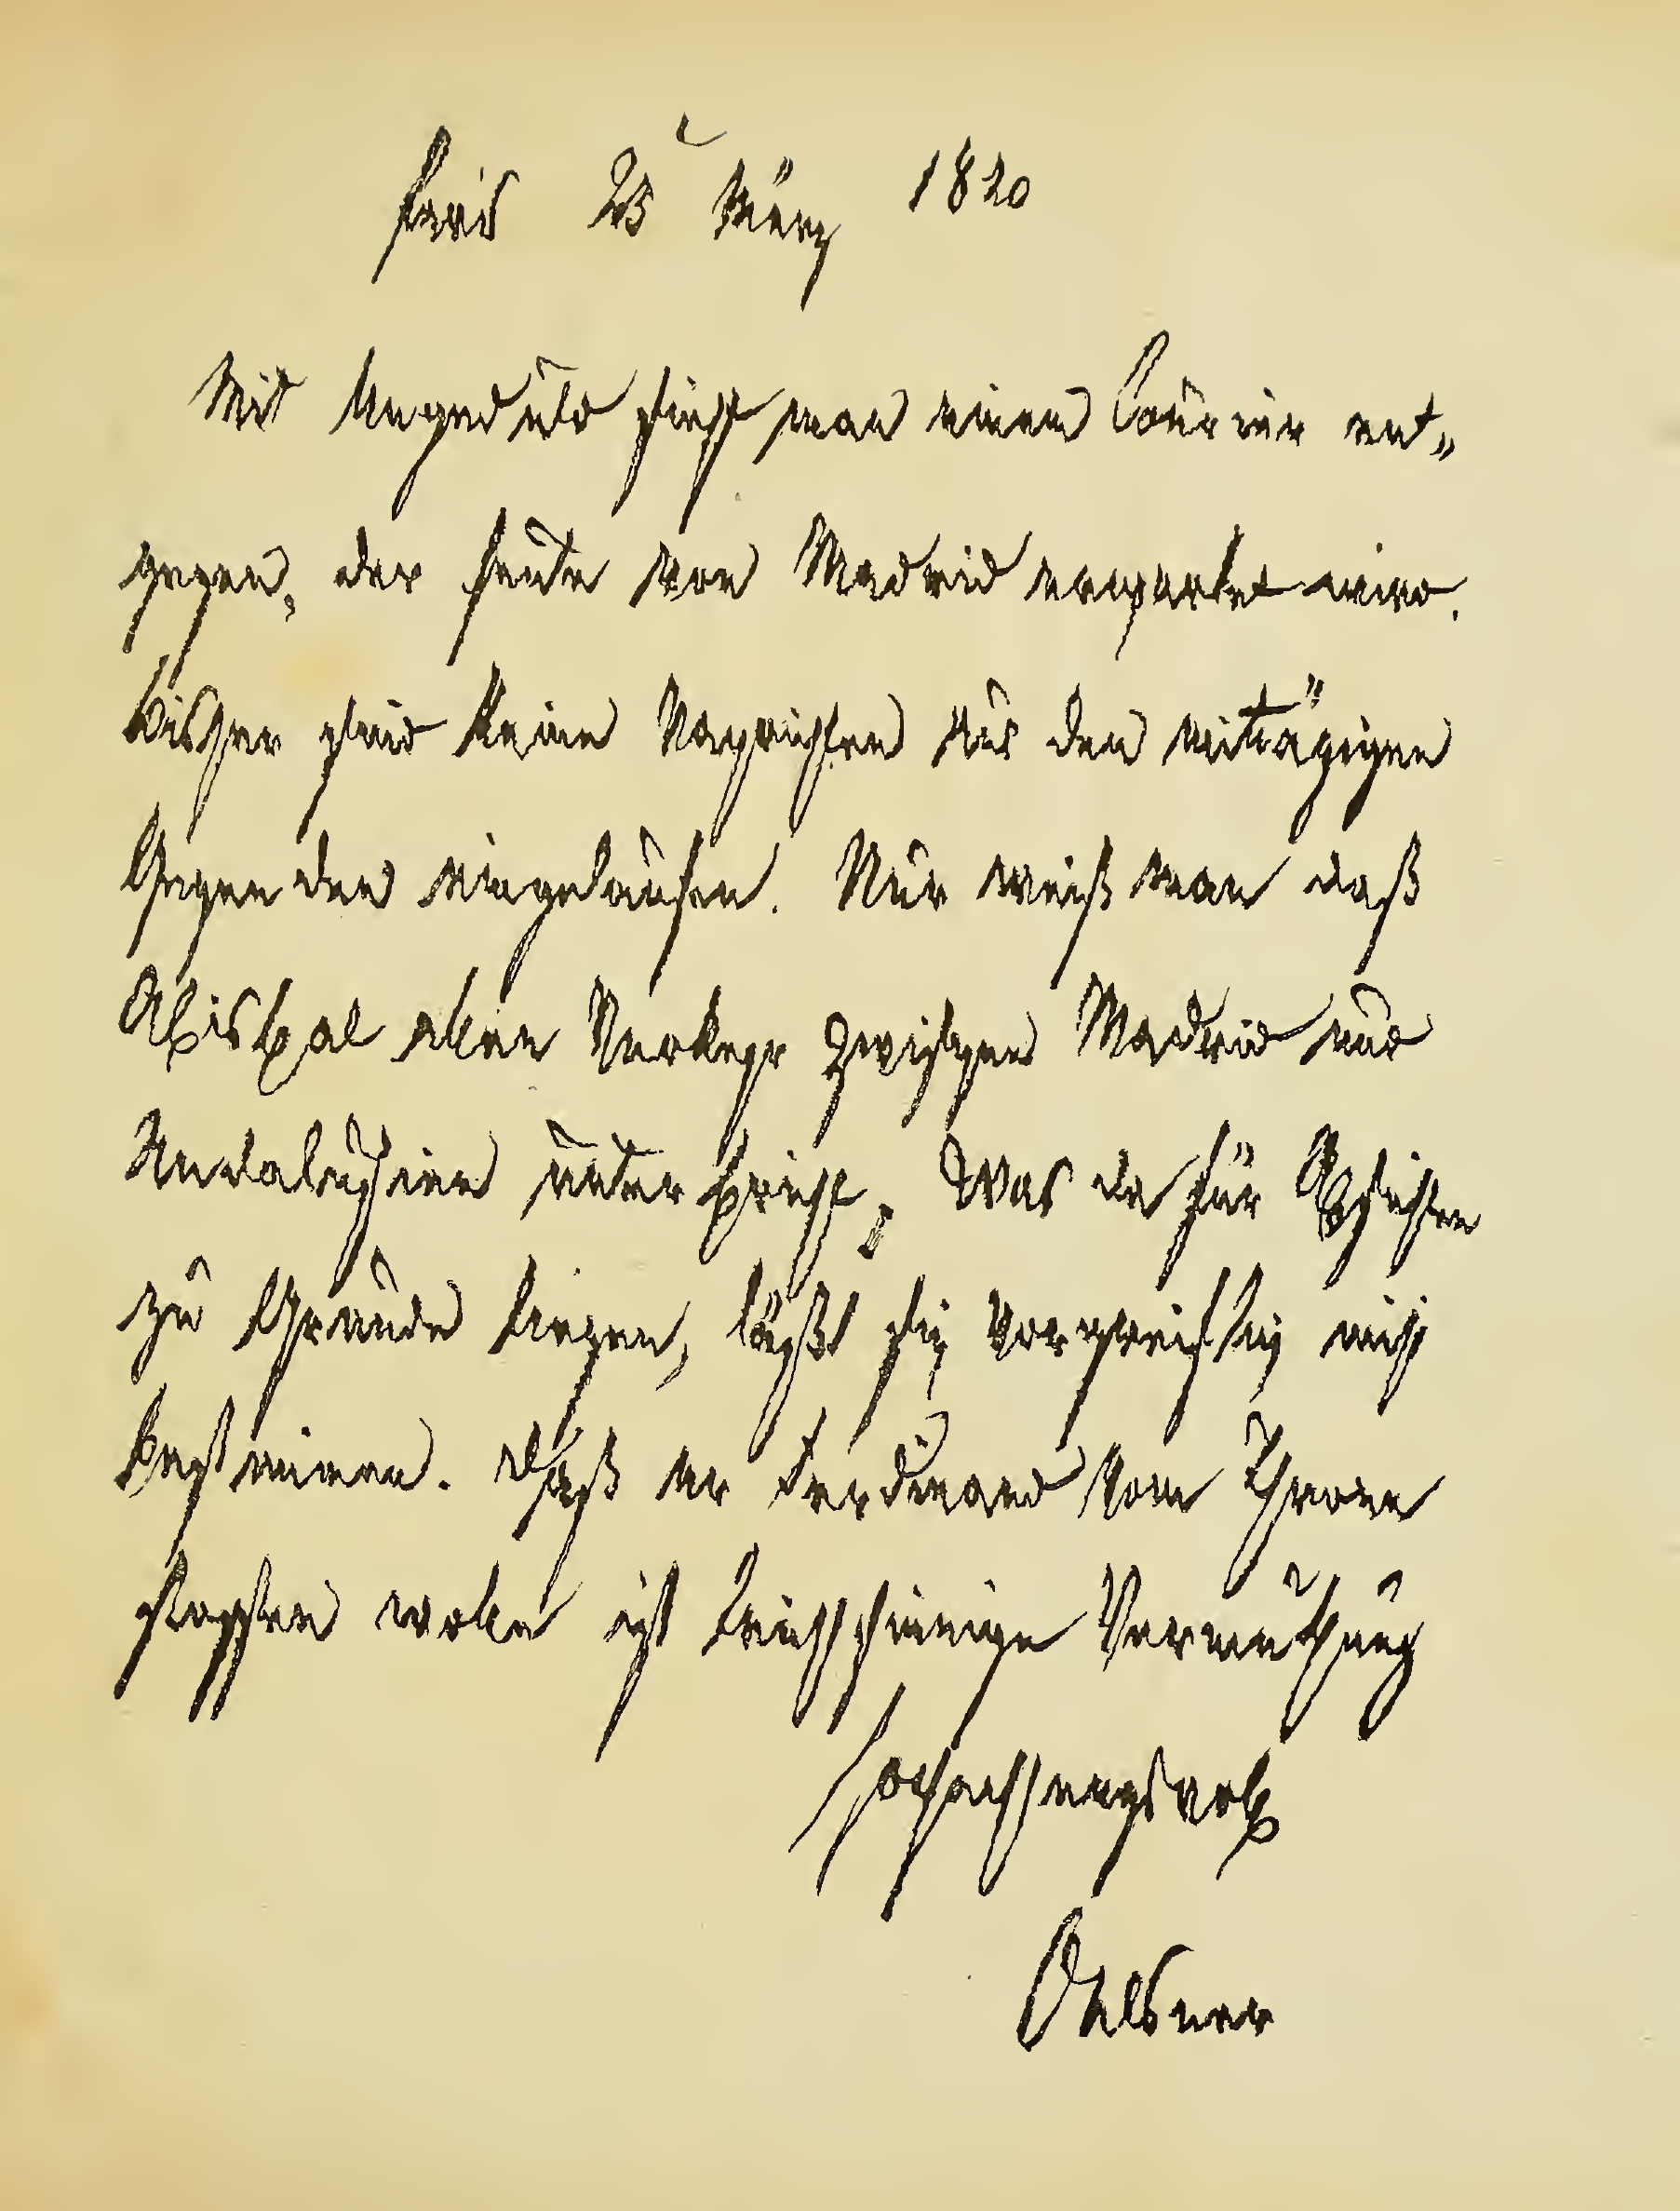 Paris 25 März 1820
Mit Ungeduld sieht man einem Courier ent„
gegen, der heute von Madrid erwartet wird.
Bisher sind keine Nachrichten aus den mitägigen
Gegenden eingelaufen. Nur weiß man daß
Abisbal allen Verkehr zwischen Madrid und
Andalusien unterbricht. Was da für Absichten
zu Grunde liegen, läßt sich vorsichtig nicht
bestimmen. Daß er Ferdinand vom Throne
stoßen wolle ist leichtsinnige Vermuthung
Hochachtungsvoll
Oelsner